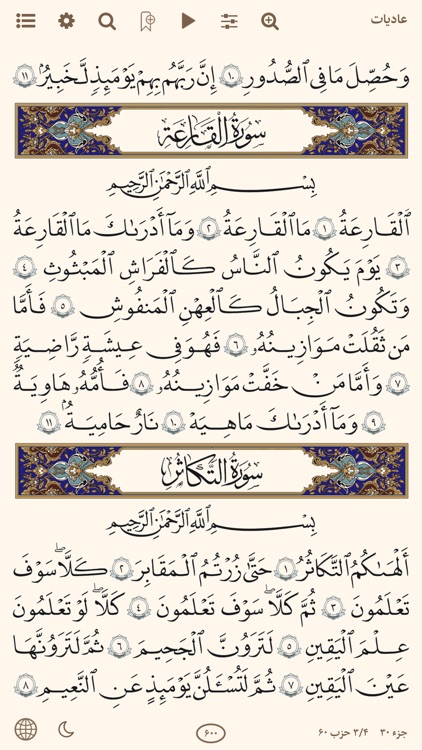 عادیات
وَحُصِّلَ مَا فِي ٱلصُّدُورِ ١٠ إِنَّ رَبَّهُم بِهِمْ يَوْمَئِذٍ لَّخَبِيرٌۢ ١١
سُورَةُ الْقَارِعَةِ
بِسْمِ ٱللَّهِ ٱلرَّحْمَٰنِ ٱلرَّحِيمِ
ٱلْقَارِعَةُ ١ مَا ٱلْقَارِعَةُ ٢ وَمَآ أَدْرَىٰكَ مَا ٱلْقَارِعَةُ
٣ يَوْمَ يَكُونُ ٱلنَّاسُ كَٱلْفَرَاشِ ٱلْمَبْثُوثِ ٤
وَتَكُونُ ٱلْجِبَالُ كَٱلْعِهْنِ ٱلْمَنفُوشِ ٥ فَأَمَّا
مَن ثَقُلَتْ مَوَٰزِينُهُۥ ٦ فَهُوَ فِي عِيشَةٍ رَّاضِيَةٍ
٧ وَأَمَّا مَنْ خَفَّتْ مَوَٰزِينُهُۥ ٨ فَأُمُّهُۥ هَاوِيَةٌ
٩ وَمَآ أَدْرَىٰكَ مَا هِيَهْ ١٠ نَارٌ حَامِيَةٌۢ ١١
سُورَةُ التَّكَاثُرِ
بِسْمِ ٱللَّهِ ٱلرَّحْمَٰنِ ٱلرَّحِيمِ
أَلْهَىٰكُمُ ٱلتَّكَاثُرُ ١ حَتَّىٰ زُرْتُمُ ٱلْمَقَابِرَ ٢ كَلَّا ۖ سَوْفَ
تَعْلَمُونَ ٣ ثُمَّ كَلَّا ۖ سَوْفَ تَعْلَمُونَ ٤ كَلَّا ۖ لَوْ تَعْلَمُونَ
عِلْمَ ٱلْيَقِينِ ٥ لَتَرَوُنَّ ٱلْجَحِيمَ ٦ ثُمَّ لَتَرَوُنَّهَا
عَيْنَ ٱلْيَقِينِ ٧ ثُمَّ لَتُسْـَٔلُنَّ يَوْمَئِذٍ عَنِ ٱلنَّعِيمِ ٨
جزء ۳۰ ۳/۴ حزب ۶۰
۶۰۰